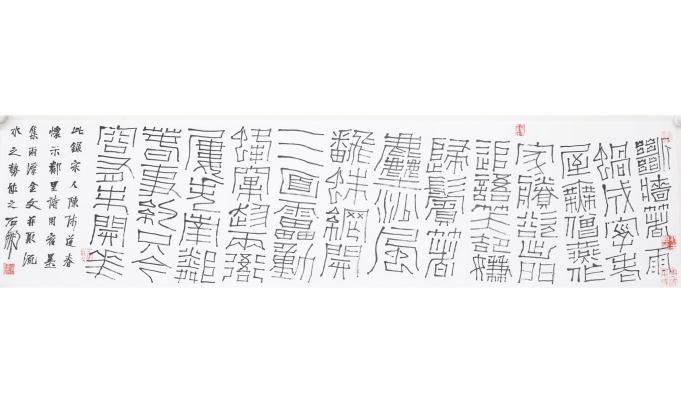 斷牆著雨
蝸成字老
屋無僧燕作
家賸欲出門
追語笑卻嫌
歸鬢著
塵沙風
翻蛛網開
三面雷動
蜂窠趁兩衙
屢失南鄰
春事約只今
容有未開花
此錄宋人陳師道春
懷示鄰里詩用宿墨
集兩漢金文并取流
水之勢能之石